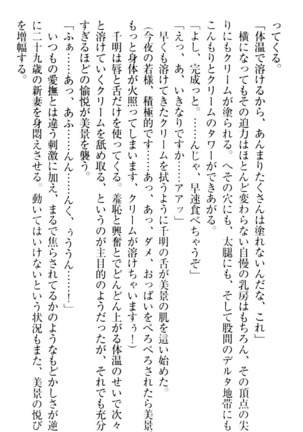 ってくる。
「体温で溶けるから、あんまりたくさんは塗れないんだな、これ」
横になってもその迫力はほとんど変わらない自慢の乳房はもちろん、その頂点の尖
りにもクリームが塗られる。へその穴にも、太腿にも、そして股間のデルタ地帯にも
こんもりとクリームのタワーができあがる。
「よし、完成っと。……んじゃ、早速食べちゃうぞ」
「えっ、あ、いきなりですか……アアッ」
早くも溶けてきたクリームを拭うように千明の舌が美景の肌を這い始めた。
（今夜の若様、積極的です……あっ、あっ、ダメ、おっぱいをぺろぺろされたら美景
もっと身体が火照ってしまいます、クリームが溶けちゃいますぅ！）
千明は唇と舌だけを使ってくる。羞恥と興奮とでどんどん上がる体温のせいで次々
と溶けていくクリームを舐め取る、というのが主目的のようだったが、それこそ充分
すぎるほどの愉悦が美景を襲う。
「ふぁ……あっ、あふ……んん……んく、ぅううん……！」
いつもの愛撫とは違う刺激に加え、まるで焦らされてるかのようなもどかしさが逆
に二十九歳の新妻を身悶えさせる。動いてはいけないという状況もまた、美景の悦び
を増幅する。